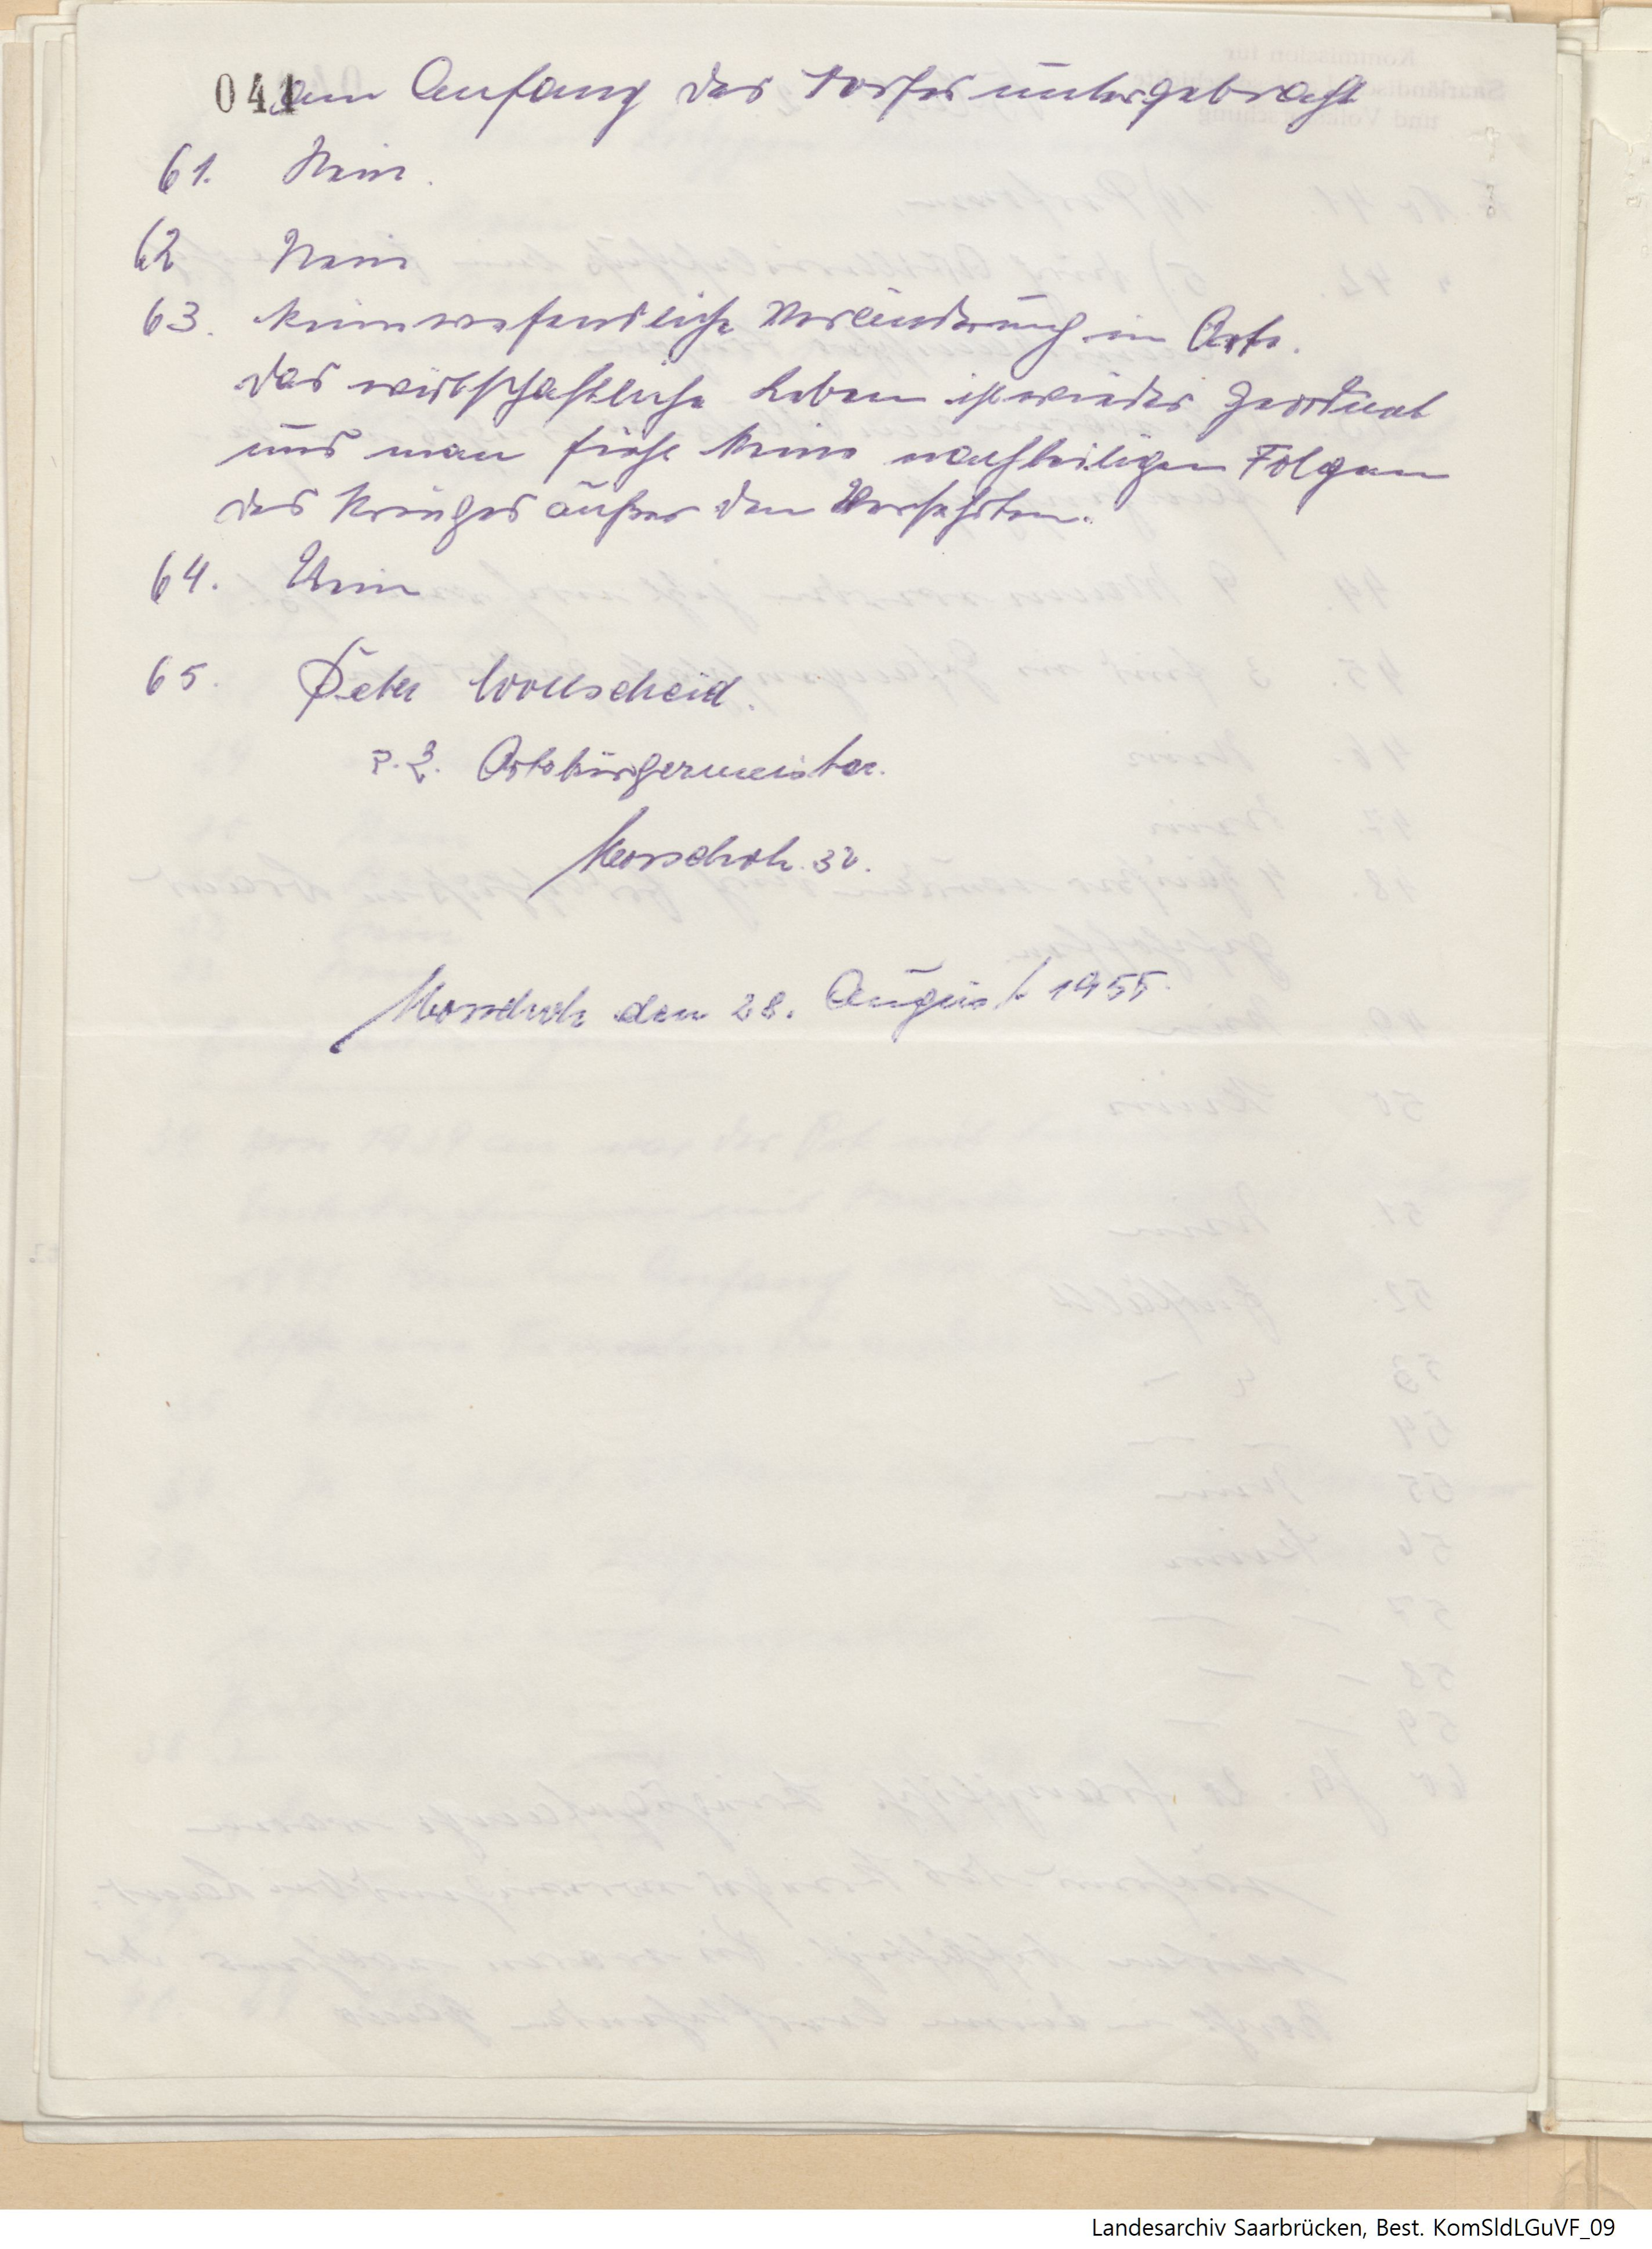 041
am Anfang des Dorfes untergebracht
61. Nein.
62 Nein
63. keine wesentliche Veränderung im Orte.
Das wirtschaftliche Leben ist wieder geordnet
und man sieht keine nachteiligen Folgen
des Krieges außer den Versehrten.
64. Nein
65. Peter Wollscheid.
z. Z. Ortsbürgermeister.
Morscholz 30.
Morscholz den 28. August 1955.
Landesarchiv Saarbrücken, Best. KomSldLGuVF_09